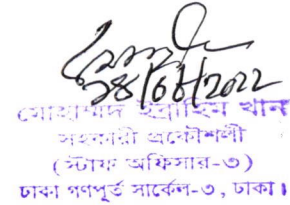 ২৪/০৮/২০২২
মোহাম্মদ ইব্রাহিম খান
সহকারী প্রকৌশলী
(স্টাফ অফিসার-৩)
ঢাকা গণপূর্ত সার্কেল-৩, ঢাকা।